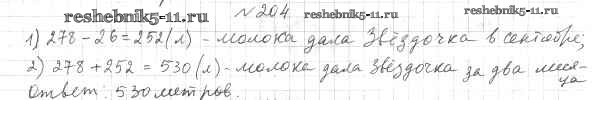 reshebnik5-11.ru №204 reshebnik5-11.ru
1) 278-26=252(л) - молока дала Звёздочка в сентябре;
2) 278+252=530(л)-молока дала Звёздочка за два меся-
ца
Ответ: 530 метров.